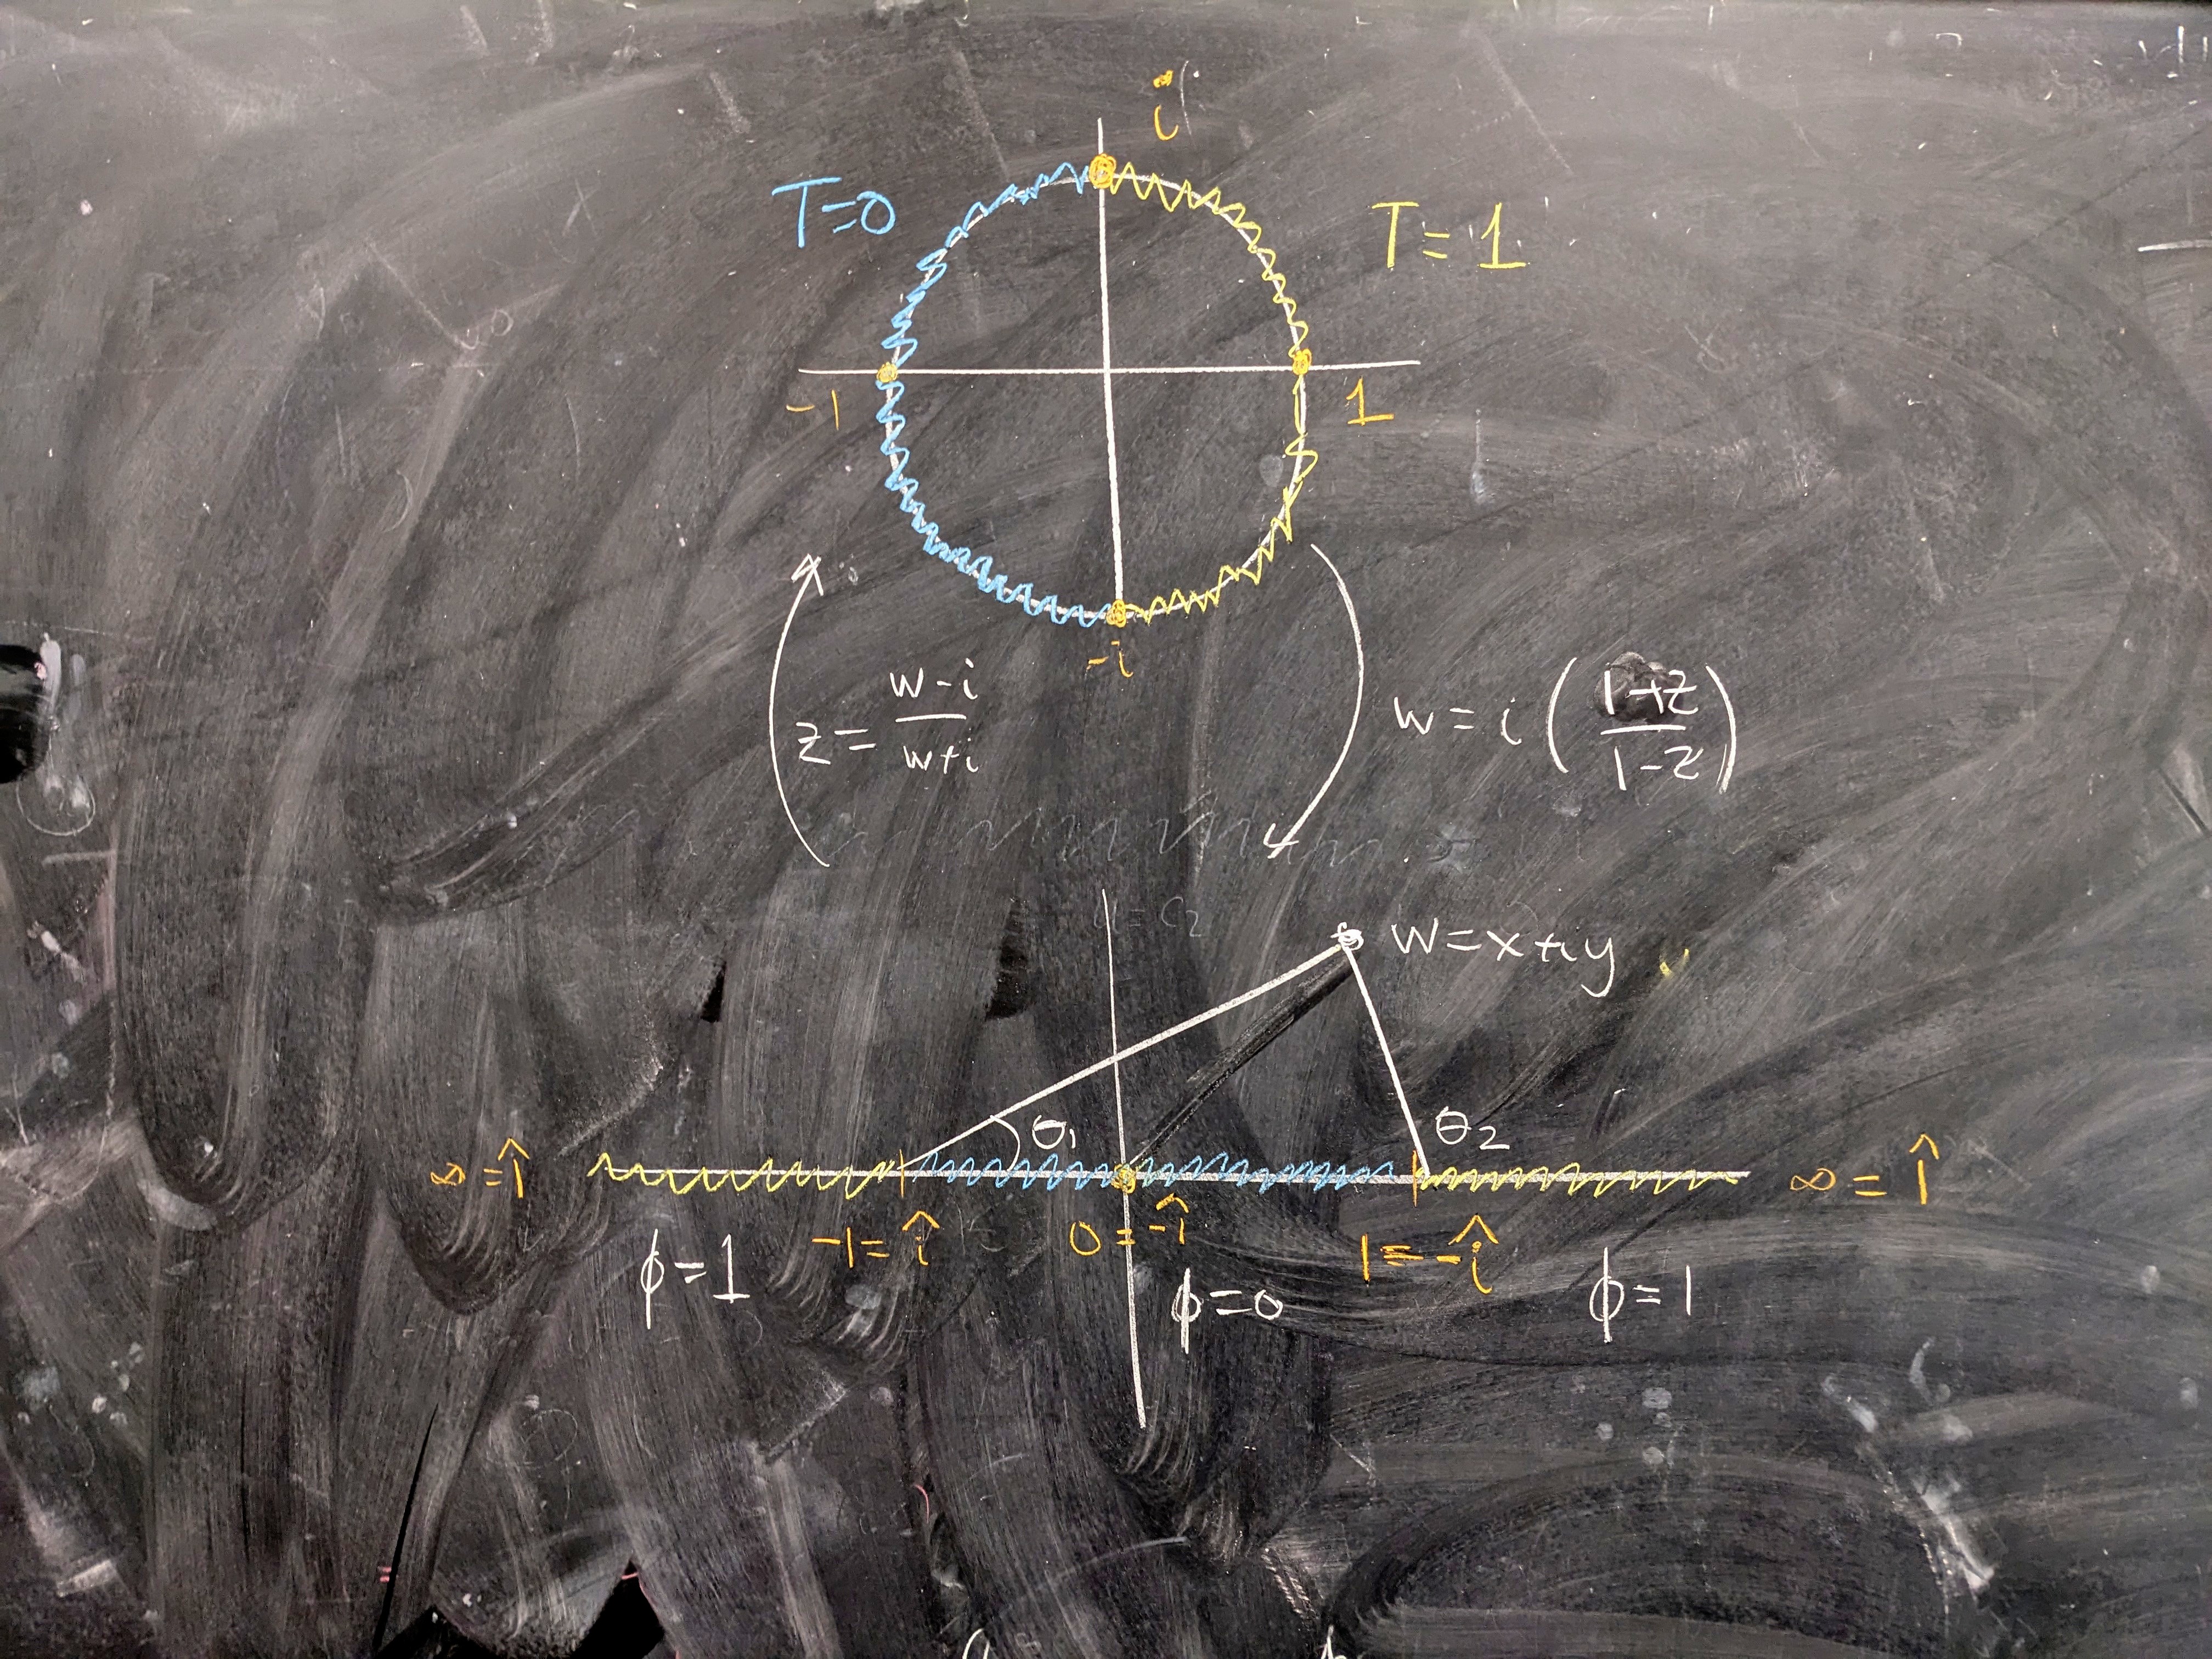 i
T=0
T=1
-1
1
-i
z = \frac{w-i}{w+i}
w = i \left( \frac{1+z}{1-z} \right)
w=x+iy
θ₁
θ₂
∞=\hat{1}
∞=\hat{1}
-1=\hat{i}
0=-\hat{1}
1=-\hat{i}
ϕ=1
ϕ=0
ϕ=1